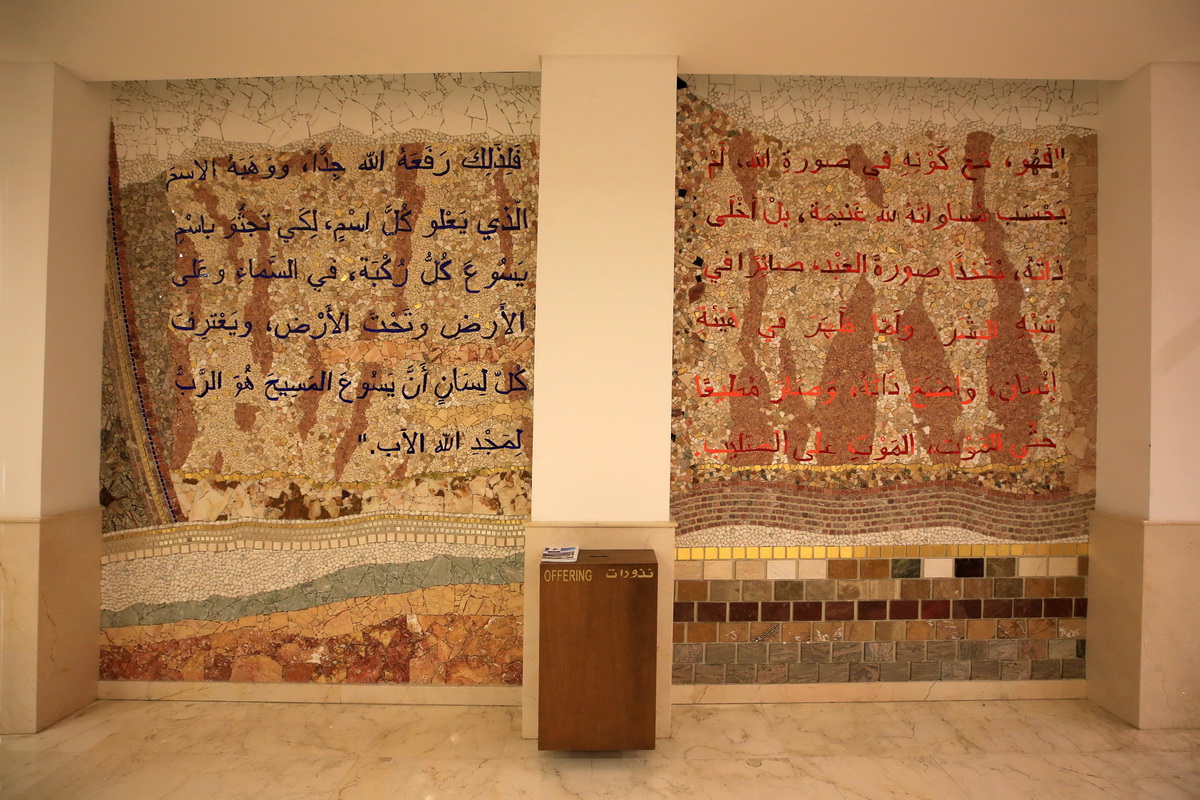 "فَهُو، مَع كَوْنِهِ في صورةِ الله، لَمْ
يَحْسَبْ مساواتهُ لله غَنيمة، بلْ أخْلَى
ذاتهُ، مُتَّخذًا صورةَ العَبْد، صائرًا في
شِبْهِ البَشَر وأمّا ظهَرَ في هَيْئةِ
إنْسان، واضَعَ ذَاتهُ، وصَارَ مُطيعًا
حتّى المَوْت، المَوْتِ على الصَّليب.
فَلِذَلِكَ رَفَعَهُ الله جِدًّا، ووَهَبَهُ الاسمَ
الّذي يَعْلو كُلَّ اسْمٍ، لِكَي تَجْثُوَ باسْمِ
يَسُوعَ كُلُّ رُكْبَة، في السَّماءِ وعَلى
الأَرضِ وتَحْتَ الأَرْض، ويَعْتَرِفَ
كُلّ لِسَانٍ أَنَّ يَسُوعَ المَسِيحَ هُوَ الرَّبُّ
لمَجْدِ الله الآب."
OFFERING نذورات